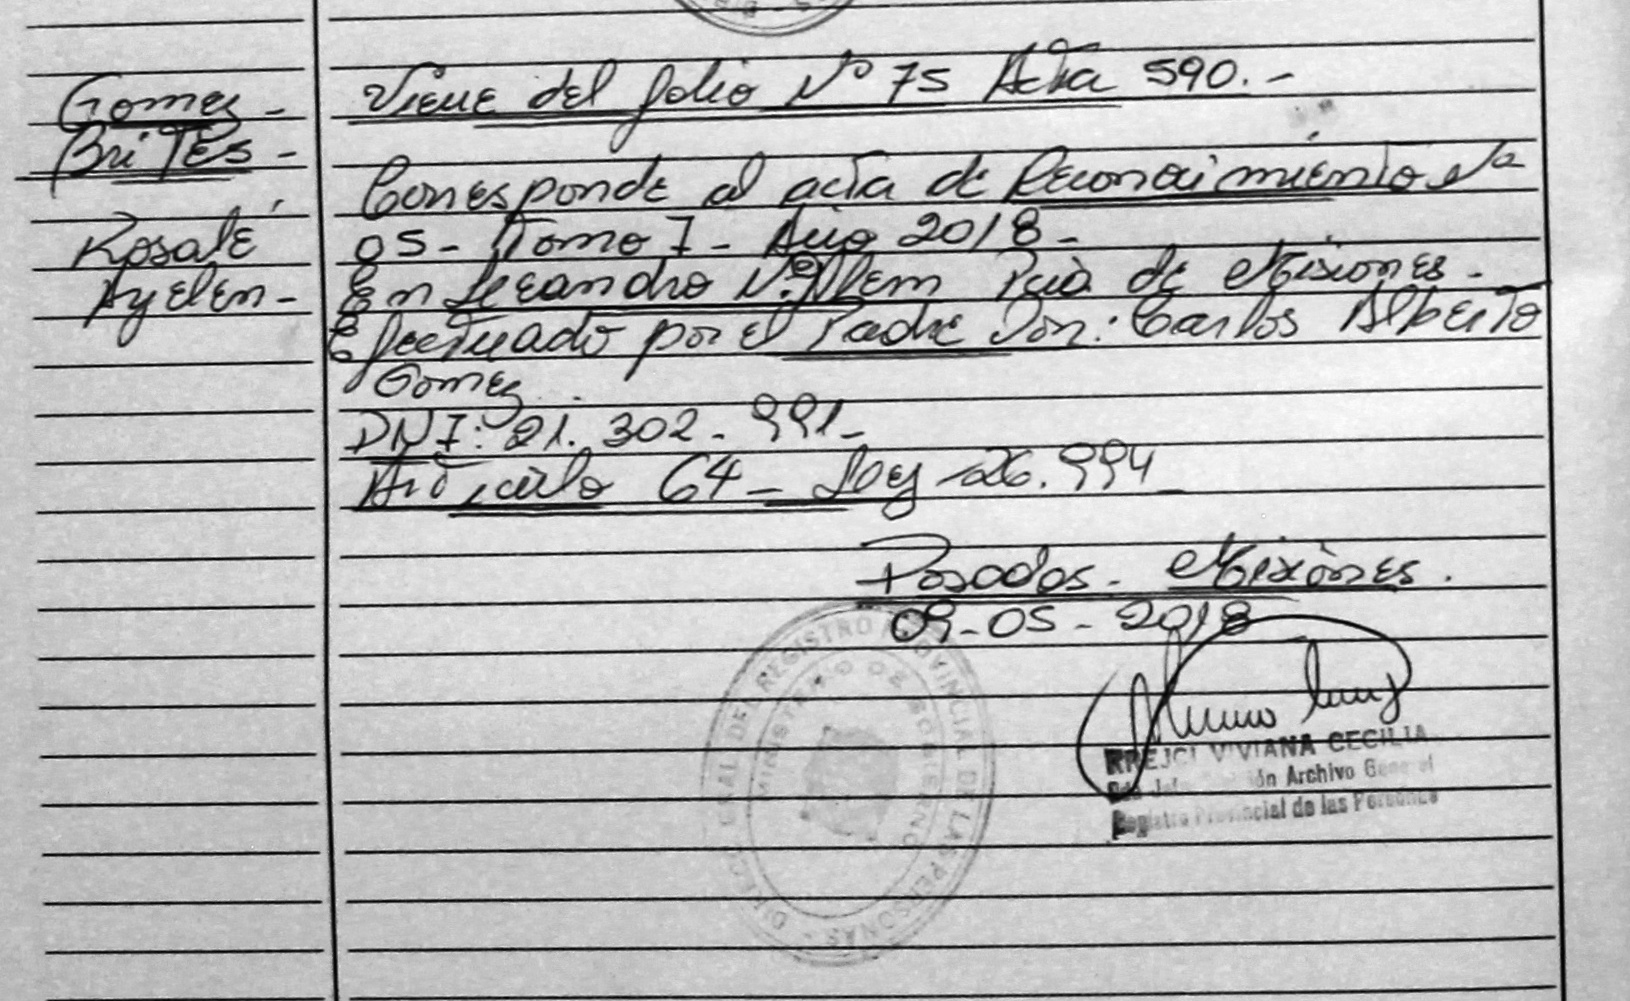 Gomez -
Brites -
Rosalé
Ayelen -
Viene del folio Nº 75 Acta 590. -
Corresponde al acta de Reconocimiento Nº
05 - Tomo 7 - Año 2018 -
En Leandro N. Alem Pcia de Misiones -
Efectuado por el Padre Don: Carlos Alberto
Gomez
DNI: 21. 302 - 991 -
Artículo 64 - Ley 26.994 -
Posadas - Misiones.
09 - 05 - 2018
DEL REGISTRO PROVINCIAL DE LAS PERSONAS -
MINISTERIO DE GOBIERNO
VIVIANA CECILIA
Archivo General
Registro Provincial de las Personas